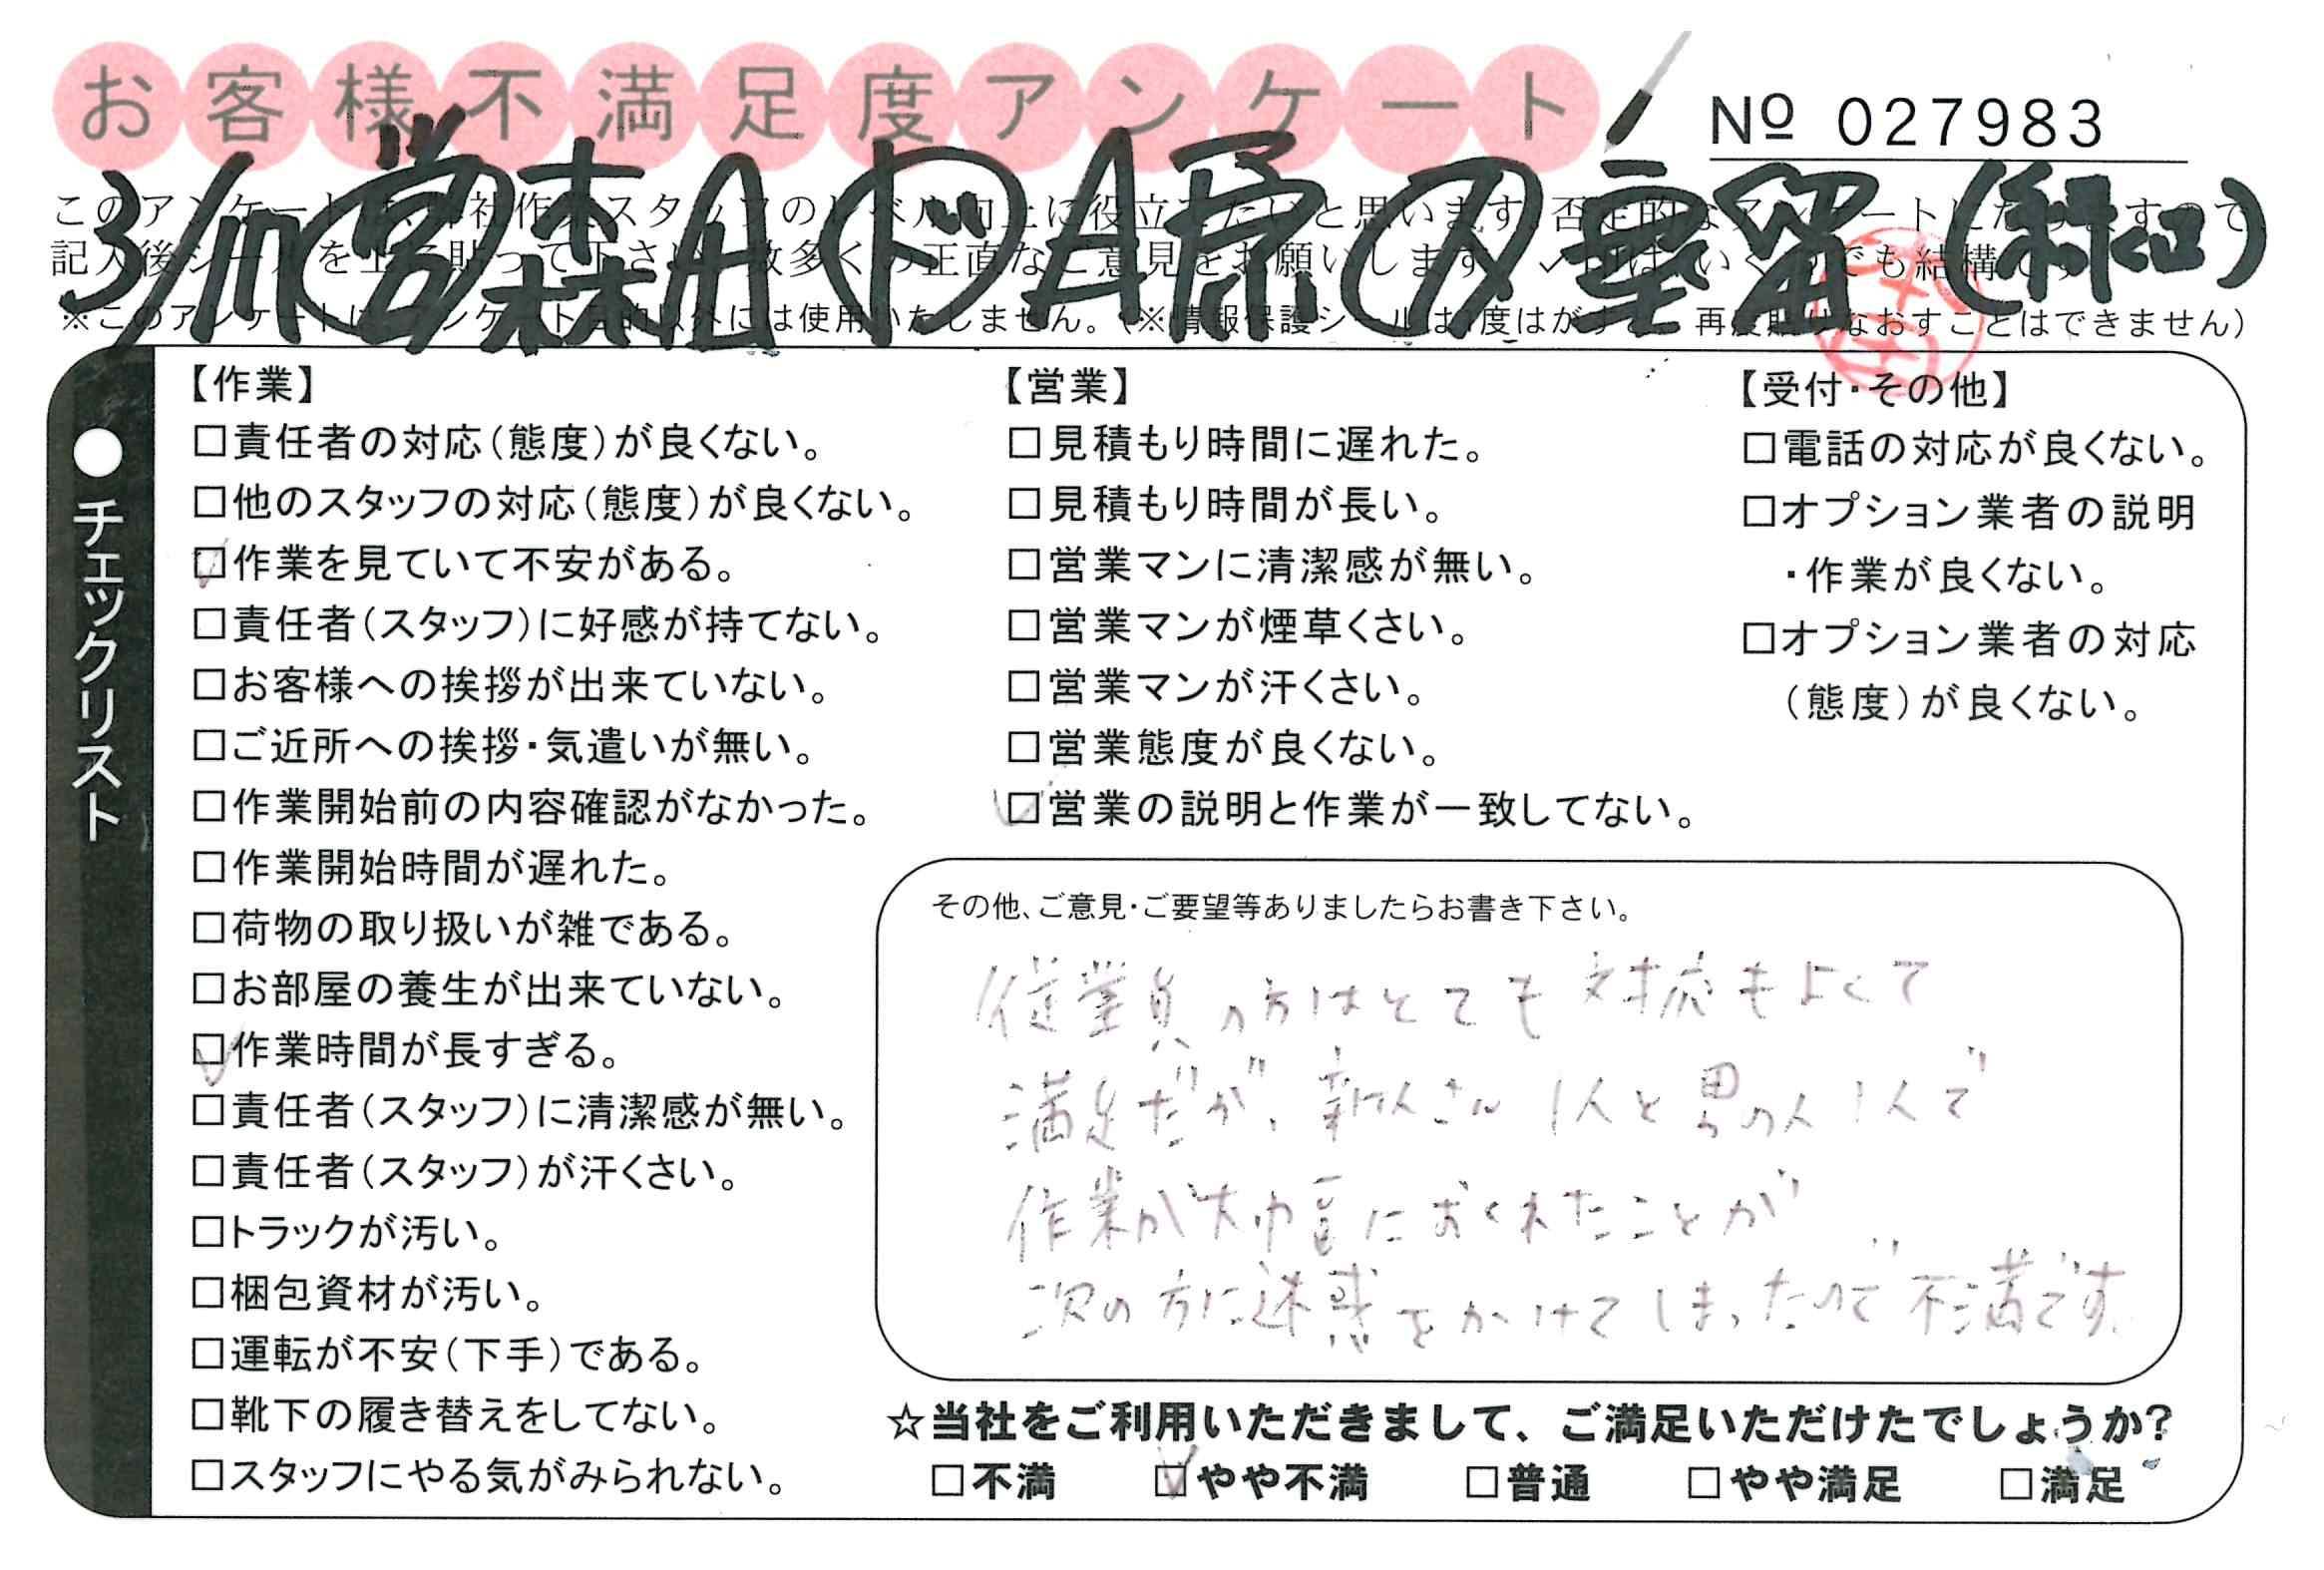 お客様不満足度アンケート
№ 027983
3/17 営 森A ド A原 ×
※このアンケートは
再度貼りなおすことはできません）
チェックリスト
【作業】
□責任者の対応（態度）が良くない。
□他のスタッフの対応（態度）が良くない。
☑作業を見ていて不安がある。
□責任者（スタッフ）に好感が持てない。
□お客様への挨拶が出来ていない。
□ご近所への挨拶・気遣いが無い。
□作業開始前の内容確認がなかった。
□作業開始時間が遅れた。
□荷物の取り扱いが雑である。
□お部屋の養生が出来ていない。
☑作業時間が長すぎる。
□責任者（スタッフ）に清潔感が無い。
□責任者（スタッフ）が汗くさい。
□トラックが汚い。
□梱包資材が汚い。
□運転が不安（下手）である。
□靴下の履き替えをしてない。
□スタッフにやる気がみられない。
【営業】
□見積もり時間に遅れた。
□見積もり時間が長い。
□営業マンに清潔感が無い。
□営業マンが煙草くさい。
□営業マンが汗くさい。
□営業態度が良くない。
☑営業の説明と作業が一致してない。
【受付・その他】
□電話の対応が良くない。
□オプション業者の説明
・作業が良くない。
□オプション業者の対応
（態度）が良くない。
その他、ご意見・ご要望等ありましたらお書き下さい。
従業員の方はとても対応もよくて
満足だが、新人さん1人と男の人1人で
作業が大巾におくれたことが
次の方に迷惑をかけてしまったので不満です
☆当社をご利用いただきまして、ご満足いただけたでしょうか？
□不満 ☑やや不満 □普通 □やや満足 □満足